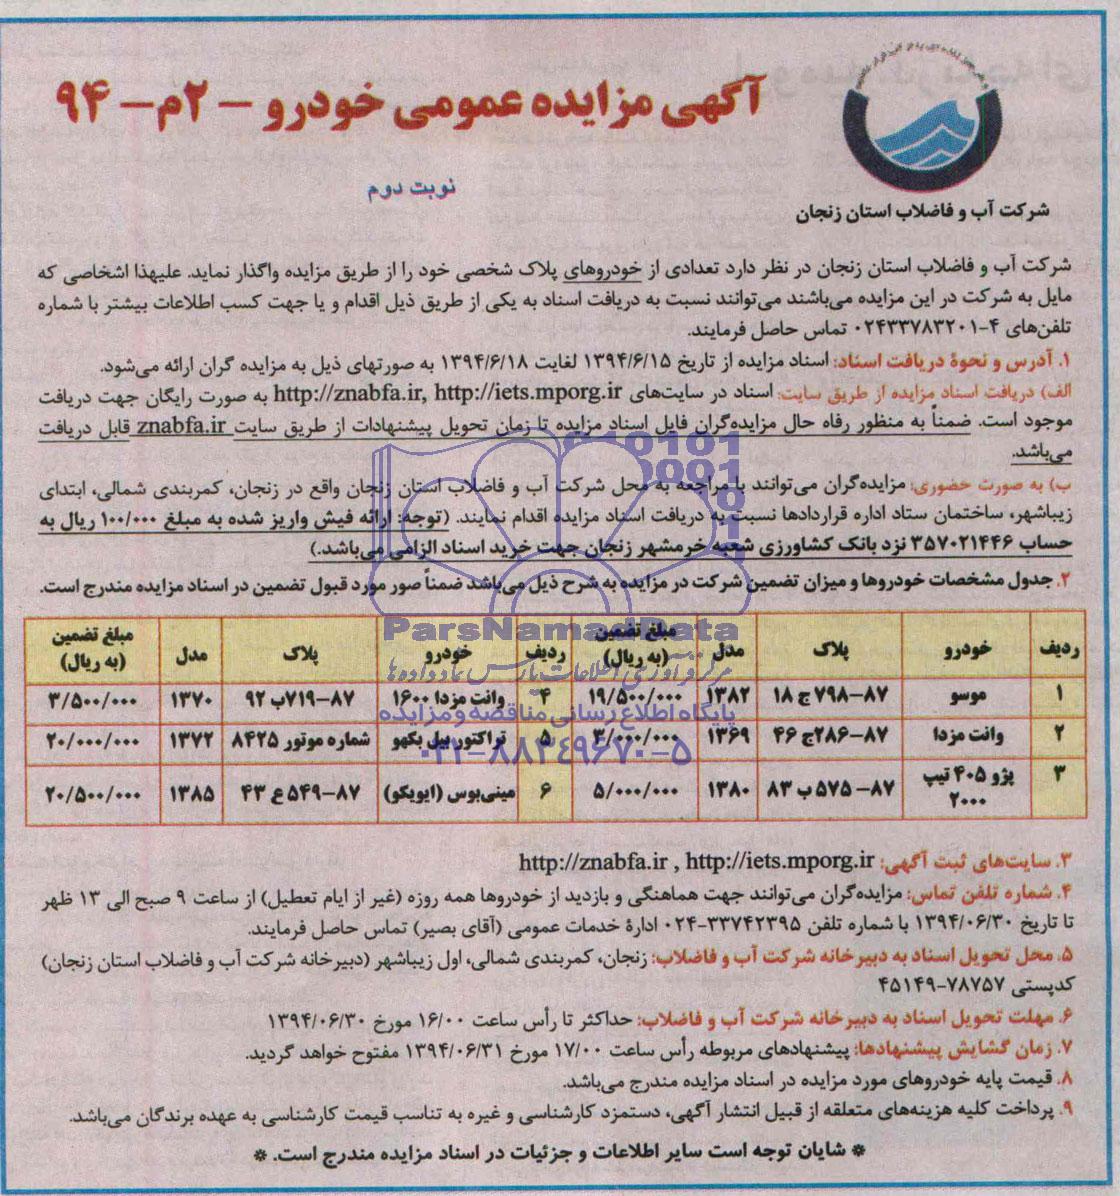 آگهی مزایده عمومی خودرو - ۲م- ۹۴
نوبت دوم
شرکت آب و فاضلاب استان زنجان
شرکت آب و فاضلاب استان زنجان در نظر دارد تعدادی از خودروهای پلاک شخصی خود را از طریق مزایده واگذار نماید. علیهذا اشخاصی که
مایل به شرکت در این مزایده می‌باشند می‌توانند نسبت به دریافت اسناد به یکی از طریق ذیل اقدام و یا جهت کسب اطلاعات بیشتر با شماره
تلفن‌های ۴-۰۲۴۳۳۷۸۳۲۰۱ تماس حاصل فرمایند.
۱. آدرس و نحوهٔ دریافت اسناد: اسناد مزایده از تاریخ ۱۳۹۴/۶/۱۵ لغایت ۱۳۹۴/۶/۱۸ به صورتهای ذیل به مزایده گران ارائه می‌شود.
الف) دریافت اسناد مزایده از طریق سایت: اسناد در سایت‌های http://znabfa.ir, http://iets.mporg.ir به صورت رایگان جهت دریافت
موجود است. ضمناً به منظور رفاه حال مزایده‌گران فایل اسناد مزایده تا زمان تحویل پیشنهادات از طریق سایت znabfa.ir قابل دریافت
می‌باشد.
ب) به صورت حضوری: مزایده‌گران می‌توانند با مراجعه به محل شرکت آب و فاضلاب استان زنجان واقع در زنجان، کمربندی شمالی، ابتدای
زیباشهر، ساختمان ستاد اداره قراردادها نسبت به دریافت اسناد مزایده اقدام نمایند. (توجه: ارائه فیش واریز شده به مبلغ ۱۰۰/۰۰۰ ریال به
حساب ۳۵۷۰۲۱۴۴۶ نزد بانک کشاورزی شعبه خرمشهر زنجان جهت خرید اسناد الزامی می‌باشد.)
۲. جدول مشخصات خودروها و میزان تضمین شرکت در مزایده به شرح ذیل می‌باشد ضمناً صور مورد قبول تضمین در اسناد مزایده مندرج است.
ردیف خودرو پلاک مدل مبلغ تضمین (به ریال) ردیف خودرو پلاک مدل مبلغ تضمین (به ریال)
۱ موسو ۸۷-۷۹۸ج ۱۸ ۱۳۸۲ ۱۹/۵۰۰/۰۰۰ ۴ وانت مزدا ۱۶۰۰ ۸۷-۷۱۹ب ۹۲ ۱۳۷۰ ۳/۵۰۰/۰۰۰
۲ وانت مزدا ۸۷-۲۸۶ج ۴۶ ۱۳۶۹ ۳/۰۰۰/۰۰۰ ۵ تراکتور بیل بکهو شماره موتور ۸۴۲۵ ۱۳۷۲ ۲۰/۰۰۰/۰۰۰
۳ پژو ۴۰۵ تیپ ۲۰۰۰ ۸۷- ۵۷۵ ب ۸۳ ۱۳۸۰ ۵/۰۰۰/۰۰۰ ۶ مینی‌بوس (ایویکو) ۸۷-۵۴۹ ع ۴۳ ۱۳۸۵ ۲۰/۵۰۰/۰۰۰
ParsNamadData
مرکز فرآوری اطلاعات پارس نماد داده‌ها
پایگاه اطلاع رسانی مناقصه و مزایده
۰۲۱-۸۸۳۴۹۶۷۰-۵
۳. سایت‌های ثبت آگهی: http://znabfa.ir , http://iets.mporg.ir
۴. شماره تلفن تماس: مزایده‌گران می‌توانند جهت هماهنگی و بازدید از خودروها همه روزه (غیر از ایام تعطیل) از ساعت ۹ صبح الی ۱۳ ظهر
تا تاریخ ۱۳۹۴/۰۶/۳۰ با شماره تلفن ۳۳۷۴۲۳۹۵-۰۲۴ ادارهٔ خدمات عمومی (آقای بصیر) تماس حاصل فرمایند.
۵. محل تحویل اسناد به دبیرخانه شرکت آب و فاضلاب: زنجان، کمربندی شمالی، اول زیباشهر (دبیرخانه شرکت آب و فاضلاب استان زنجان)
کدپستی ۷۸۷۵۷-۴۵۱۴۹
۶. مهلت تحویل اسناد به دبیرخانه شرکت آب و فاضلاب: حداکثر تا رأس ساعت ۱۶/۰۰ مورخ ۱۳۹۴/۰۶/۳۰
۷. زمان گشایش پیشنهادها: پیشنهادهای مربوطه رأس ساعت ۱۷/۰۰ مورخ ۱۳۹۴/۰۶/۳۱ مفتوح خواهد گردید.
۸. قیمت پایه خودروهای مورد مزایده در اسناد مزایده مندرج می‌باشد.
۹. پرداخت کلیه هزینه‌های متعلقه از قبیل انتشار آگهی، دستمزد کارشناسی و غیره به تناسب قیمت کارشناسی به عهده برندگان می‌باشد.
* شایان توجه است سایر اطلاعات و جزئیات در اسناد مزایده مندرج است. *